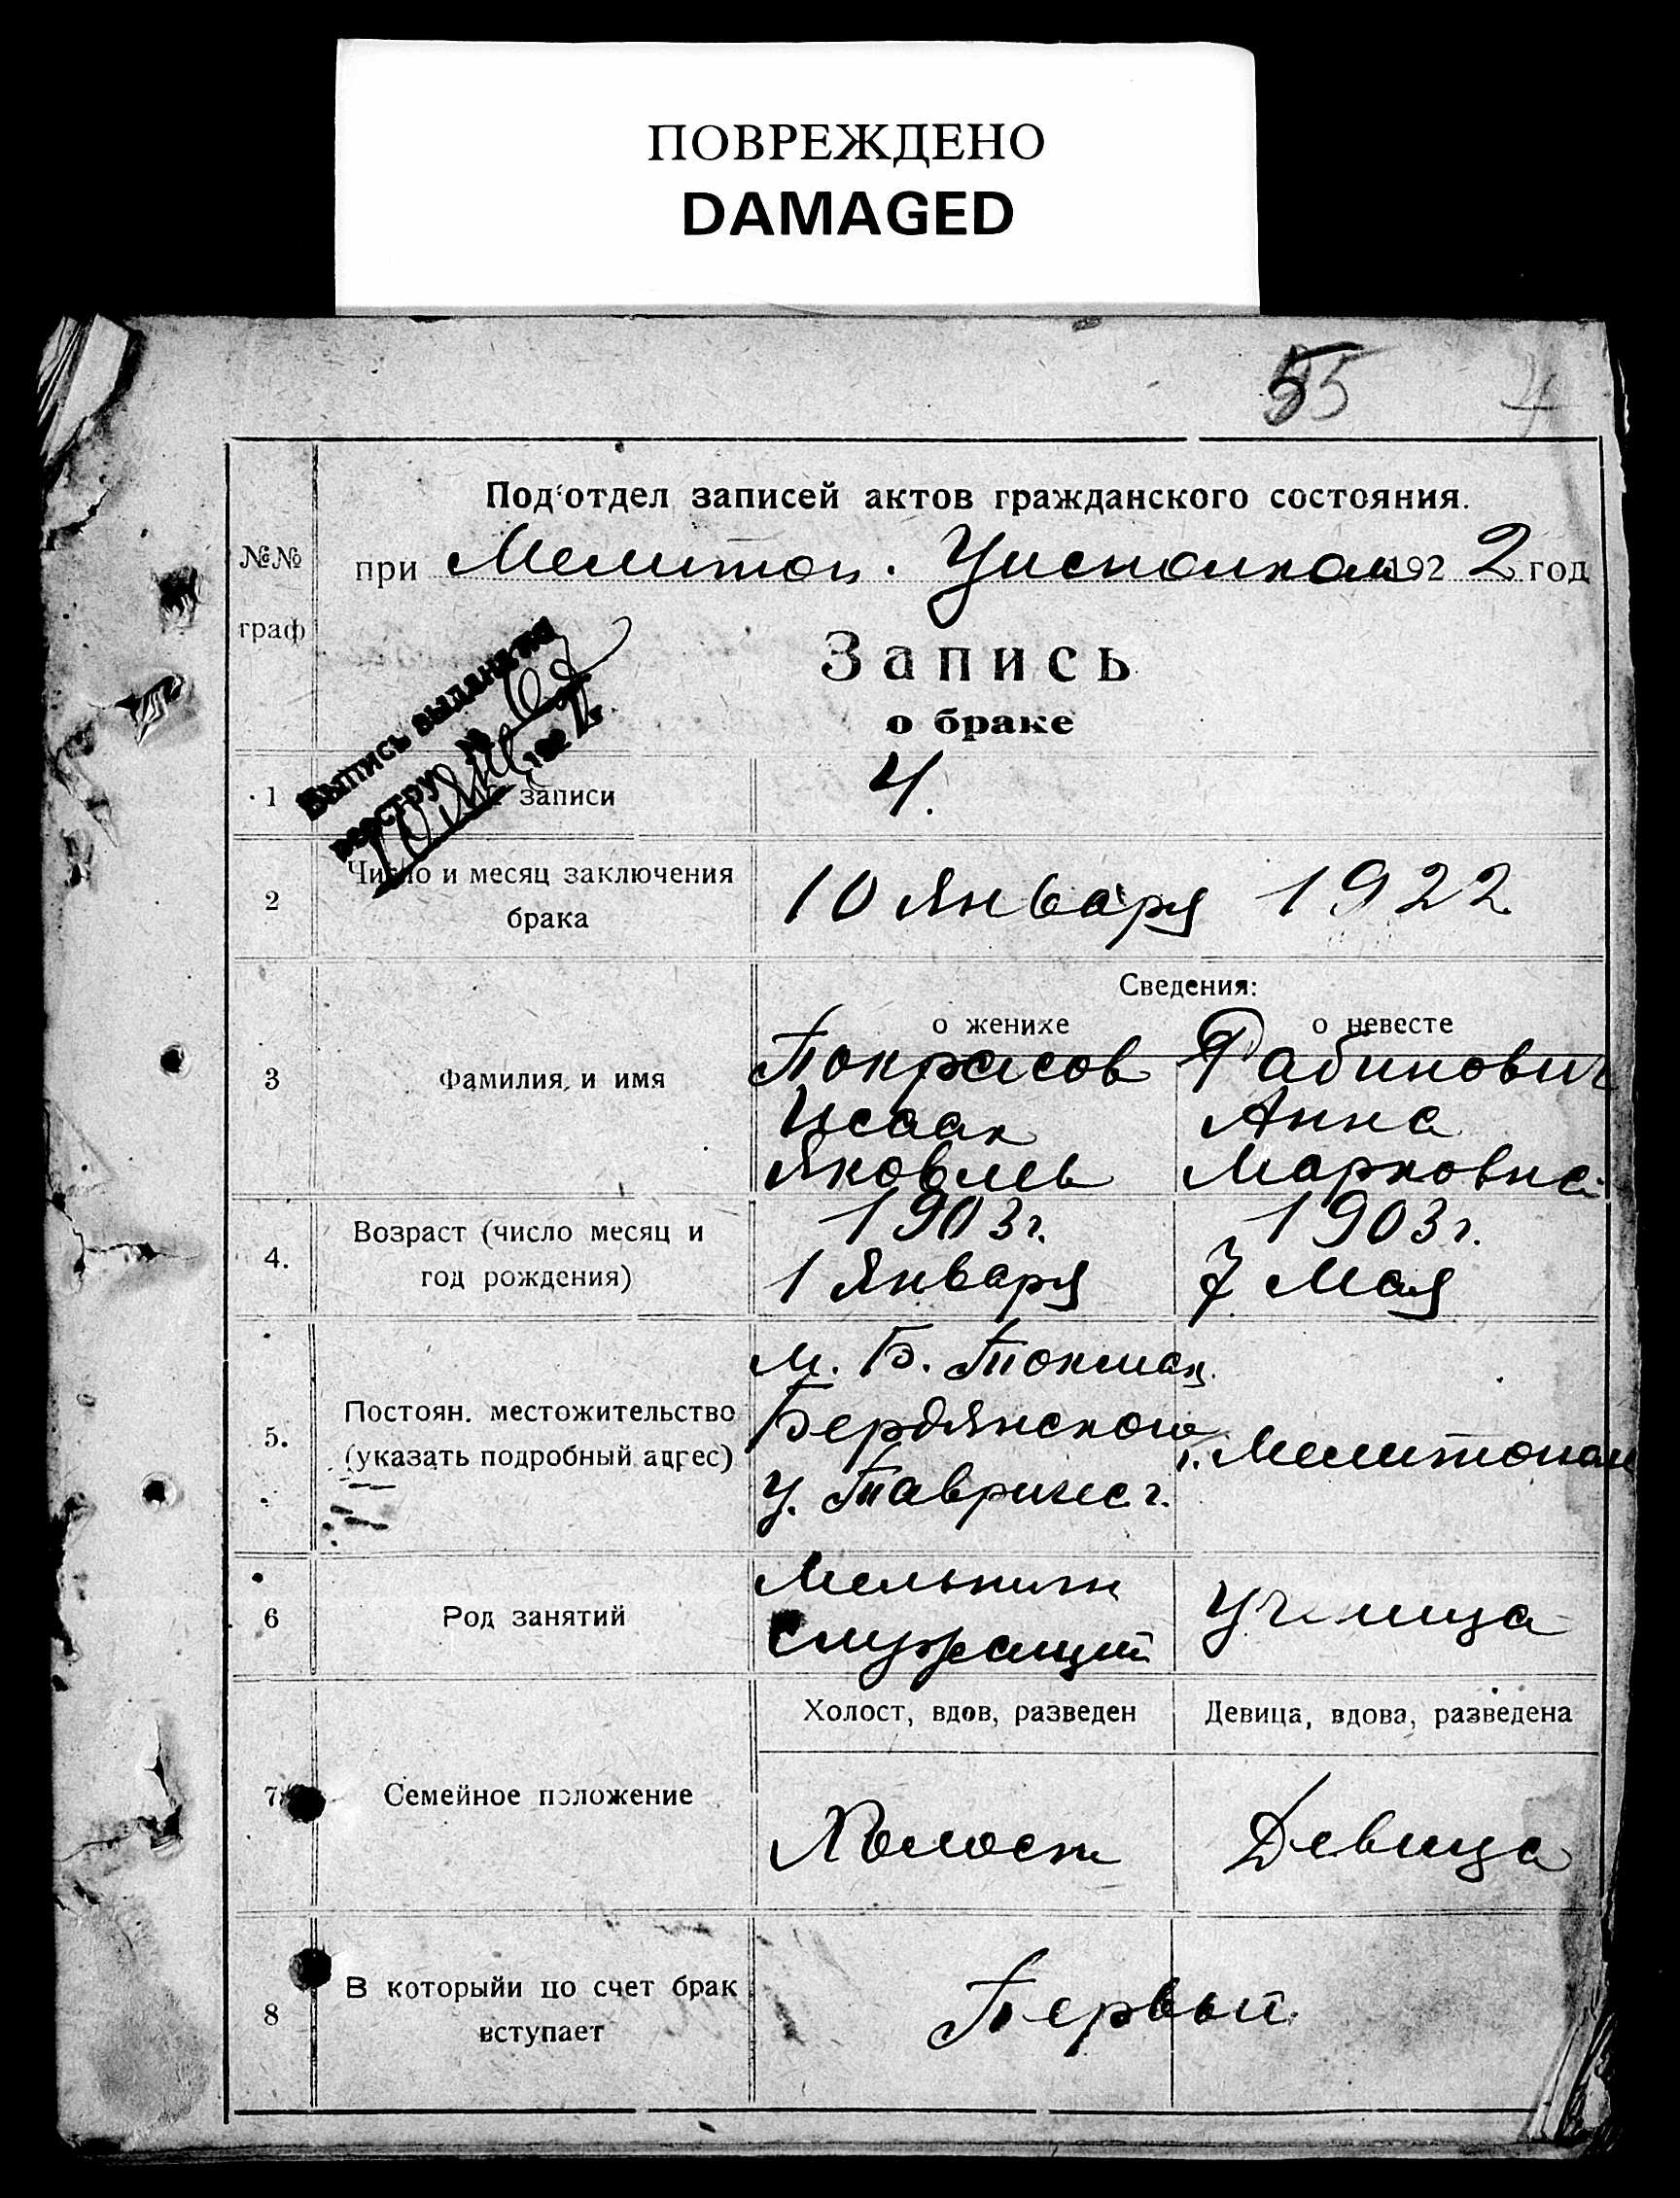 ПОВРЕЖДЕНО
DAMAGED
55 4
Под'отдел записей актов гражданского состояния.
№№ граф
при Мелитоп. Уисполком 1922 год
Запись
о браке
Выпись выдана по
реестру № 192
1 записи 4.
2 Число и месяц заключения брака 10 Января 1922
Сведения:
о женихе о невесте
3 Фамилия и имя
Покрасов Рабинович
Исаак Анна
Яковлев Марковна
4. Возраст (число месяц и год рождения)
1903 г. 1903 г.
1 Января 7 Мая
5. Постоян. местожительство
(указать подробный адрес)
м. Б. Токмак
Бердянского
у. Таврич. г.
г. Мелитополь
6 Род занятий
Мельник
Служащий Ученица
Холост, вдов, разведен Девица, вдова, разведена
7 Семейное положение Холост Девица
8 В которыйи по счет брак
вступает Первый